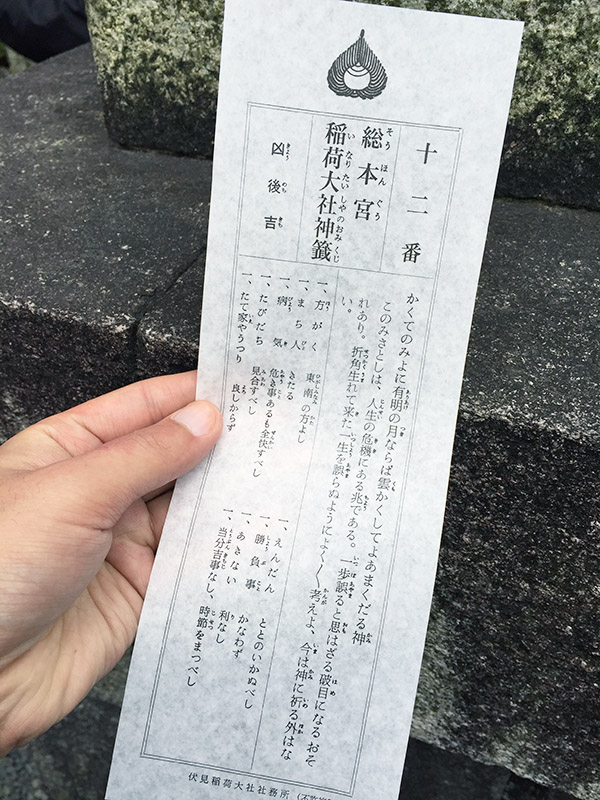 十二番
総本宮
稲荷大社神籤
凶後吉
かくてのみよに有明の月ならば雲かくしてよあまくだる神
このみさとしは、人生の危機にある兆である。一歩誤ると思はざる破目になるおそ
れあり。折角生れて来た一生を誤らぬようによく〳〵考えよ、今は神に祈る外はな
い。
一、方がく 東南の方よし
一、まち人 きたる
一、病気 危き事あるも全快すべし
一、たびだち 見合すべし
一、たて家やうつり 良しからず
一、えんだん ととのいかぬべし
一、勝負事 かなわず
一、あきない 利なし
一、当分吉事なし、時節をまつべし
伏見稲荷大社社務所